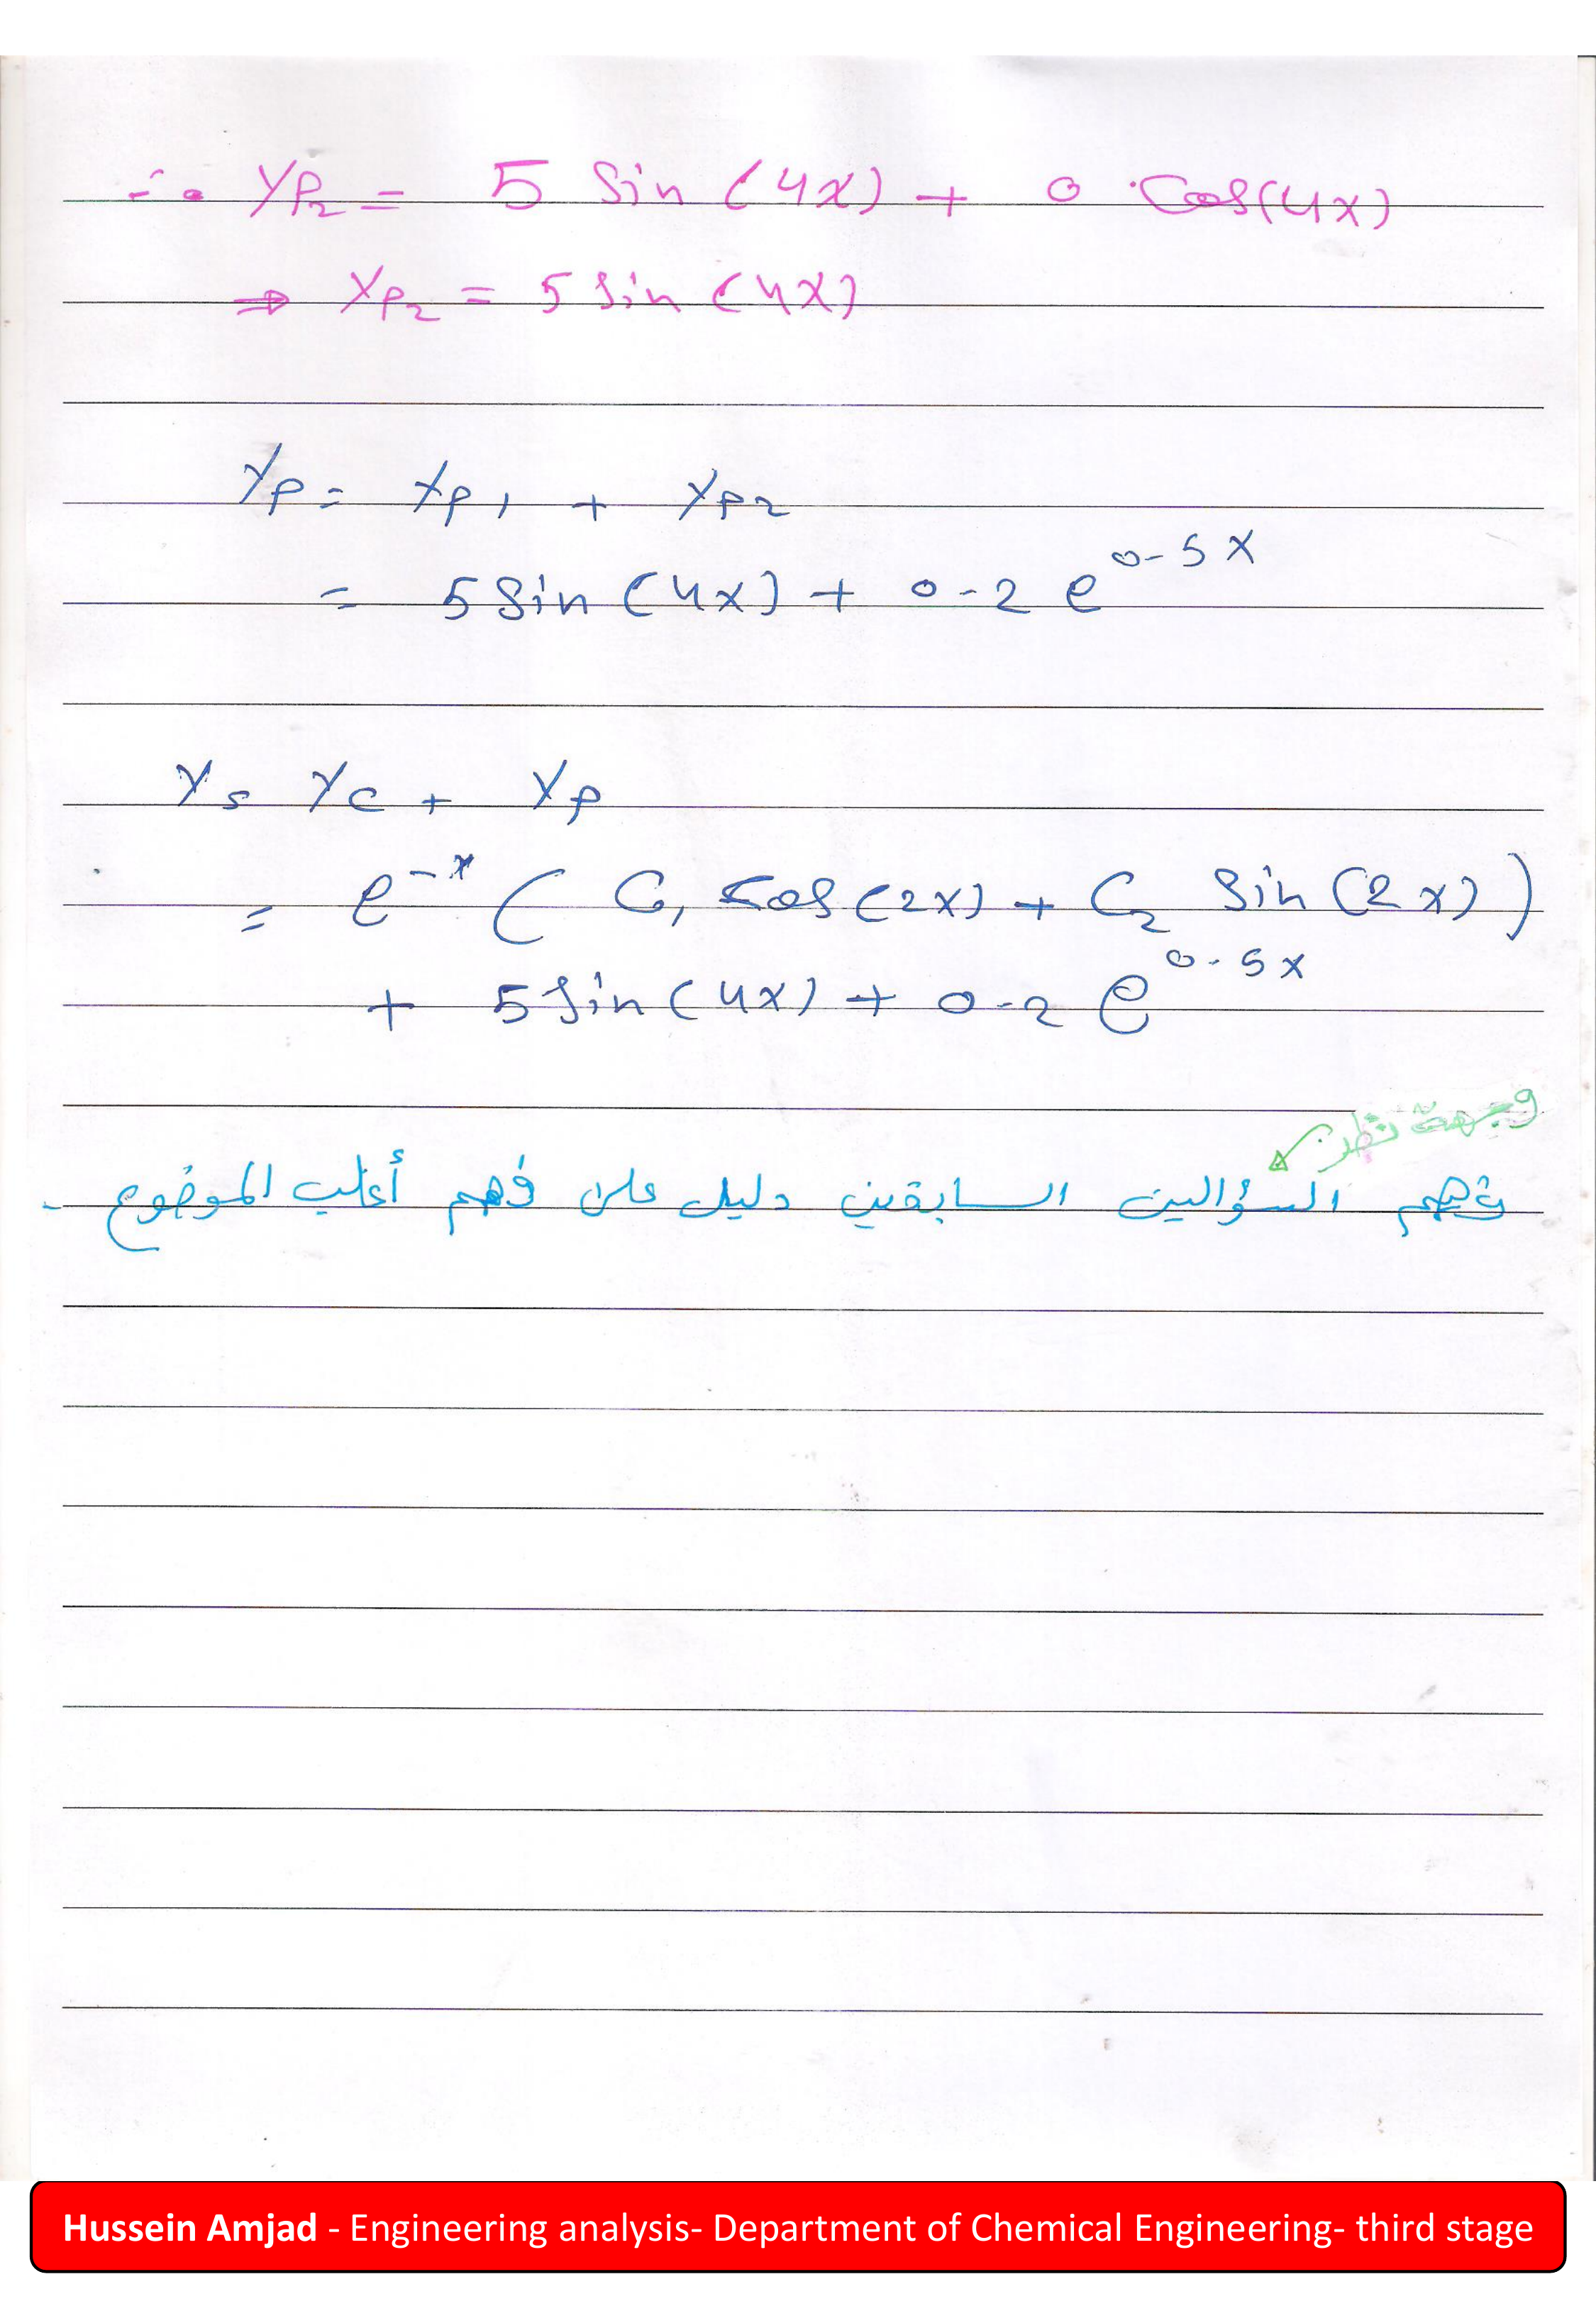 ∴ yp₂ = 5 Sin (4x) + 0 · Cos(4x)
⇒ yp₂ = 5 Sin (4x)
yp = yp₁ + yp₂
= 5 Sin (4x) + 0.2 e^0.5x
y = yc + yp
= e^-x ( C₁ Cos(2x) + C₂ Sin (2x) )
+ 5 Sin (4x) + 0.2 e^0.5x
وجهة نظر
فهم السؤالين السابقين دليل على فهم أغلب الموضوع .
Hussein Amjad - Engineering analysis- Department of Chemical Engineering- third stage